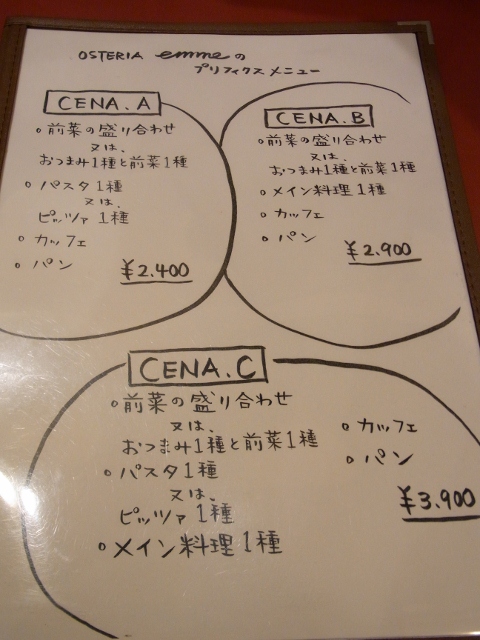 OSTERIA emmeの
プリフィクスメニュー
CENA.A
○前菜の盛り合わせ
又は、
おつまみ1種と前菜1種
○パスタ1種
又は、
ピッツァ1種
○カッフェ
○パン
¥2.400
CENA.B
○前菜の盛り合わせ
又は、
おつまみ1種と前菜1種
○メイン料理1種
○カッフェ
○パン
¥2.900
CENA.C
○前菜の盛り合わせ
又は、
おつまみ1種と前菜1種
○パスタ1種
又は、
ピッツァ1種
○メイン料理1種
○カッフェ
○パン
¥3.900